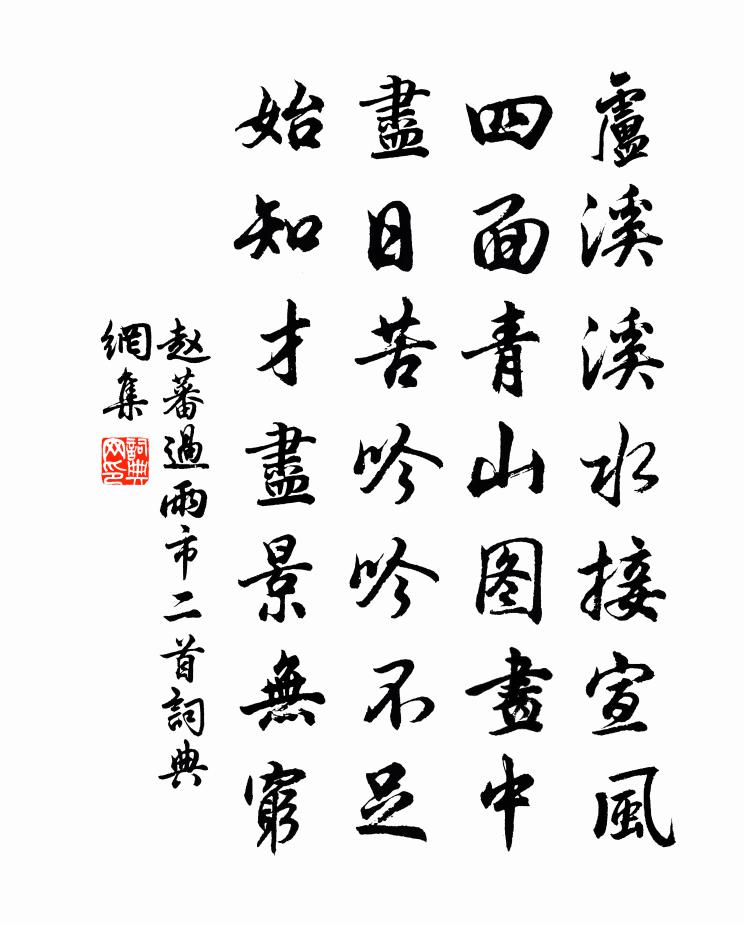 盧溪溪水接宣風
四面青山图畫中
盡日苦吟吟不足
始知才盡景無窮
赵蕃過兩市二首詞典
網集
詞典網印